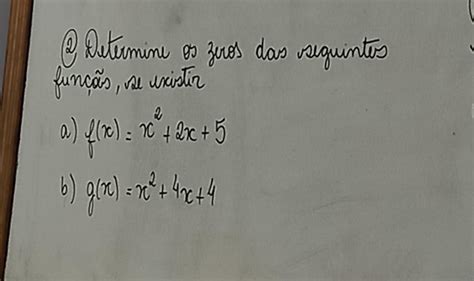 ② Determine os zeros das seguintes
função, se existir
a) f(x) = x² + 2x + 5
b) g(x) = x² + 4x + 4